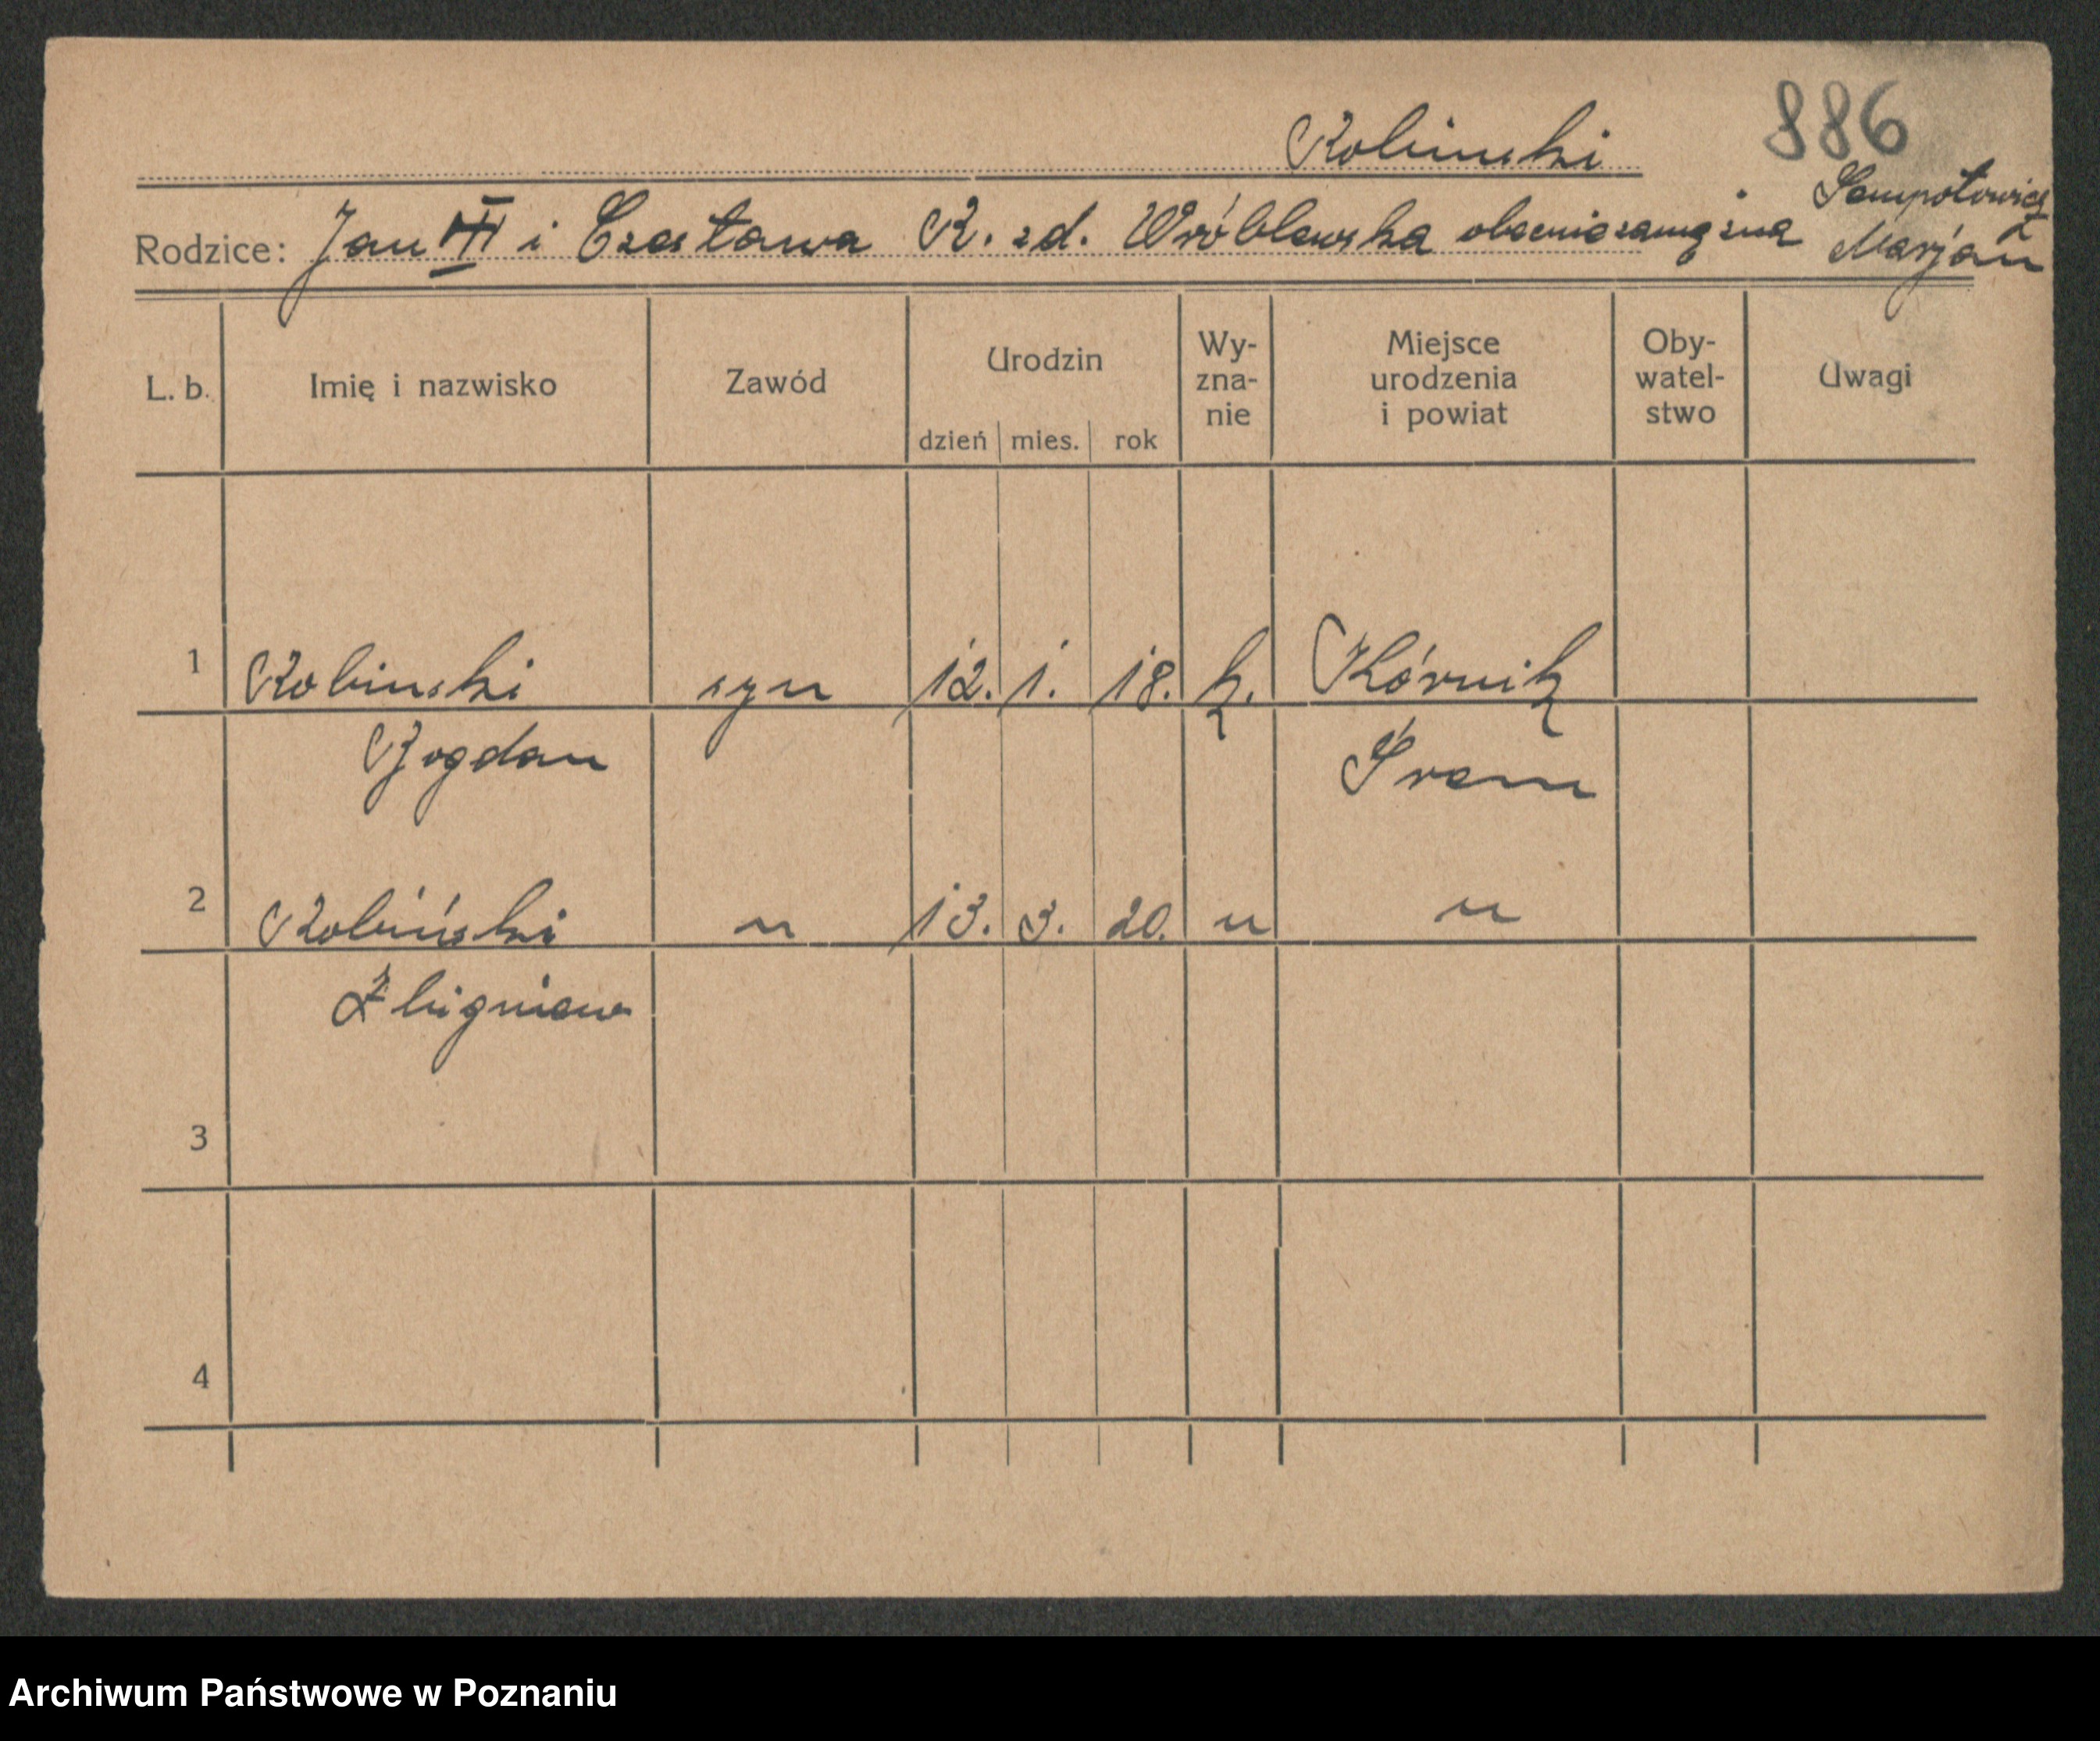 886
Robinski
Rodzice: Jan III i Czesława R. zd. Wróblewska obecnie zamężna
Marjan
L. b. Imię i nazwisko Zawód Urodzin dzień mies. rok Wy-zna-nie Miejsce urodzenia i powiat Oby-watel-stwo Uwagi
1 Robinski syn 12. 1. 18. k. Kórnik
Bogdan Śrem
2 Robiński " 13. 3. 20. " "
Zbigniew
3
4
Archiwum Państwowe w Poznaniu